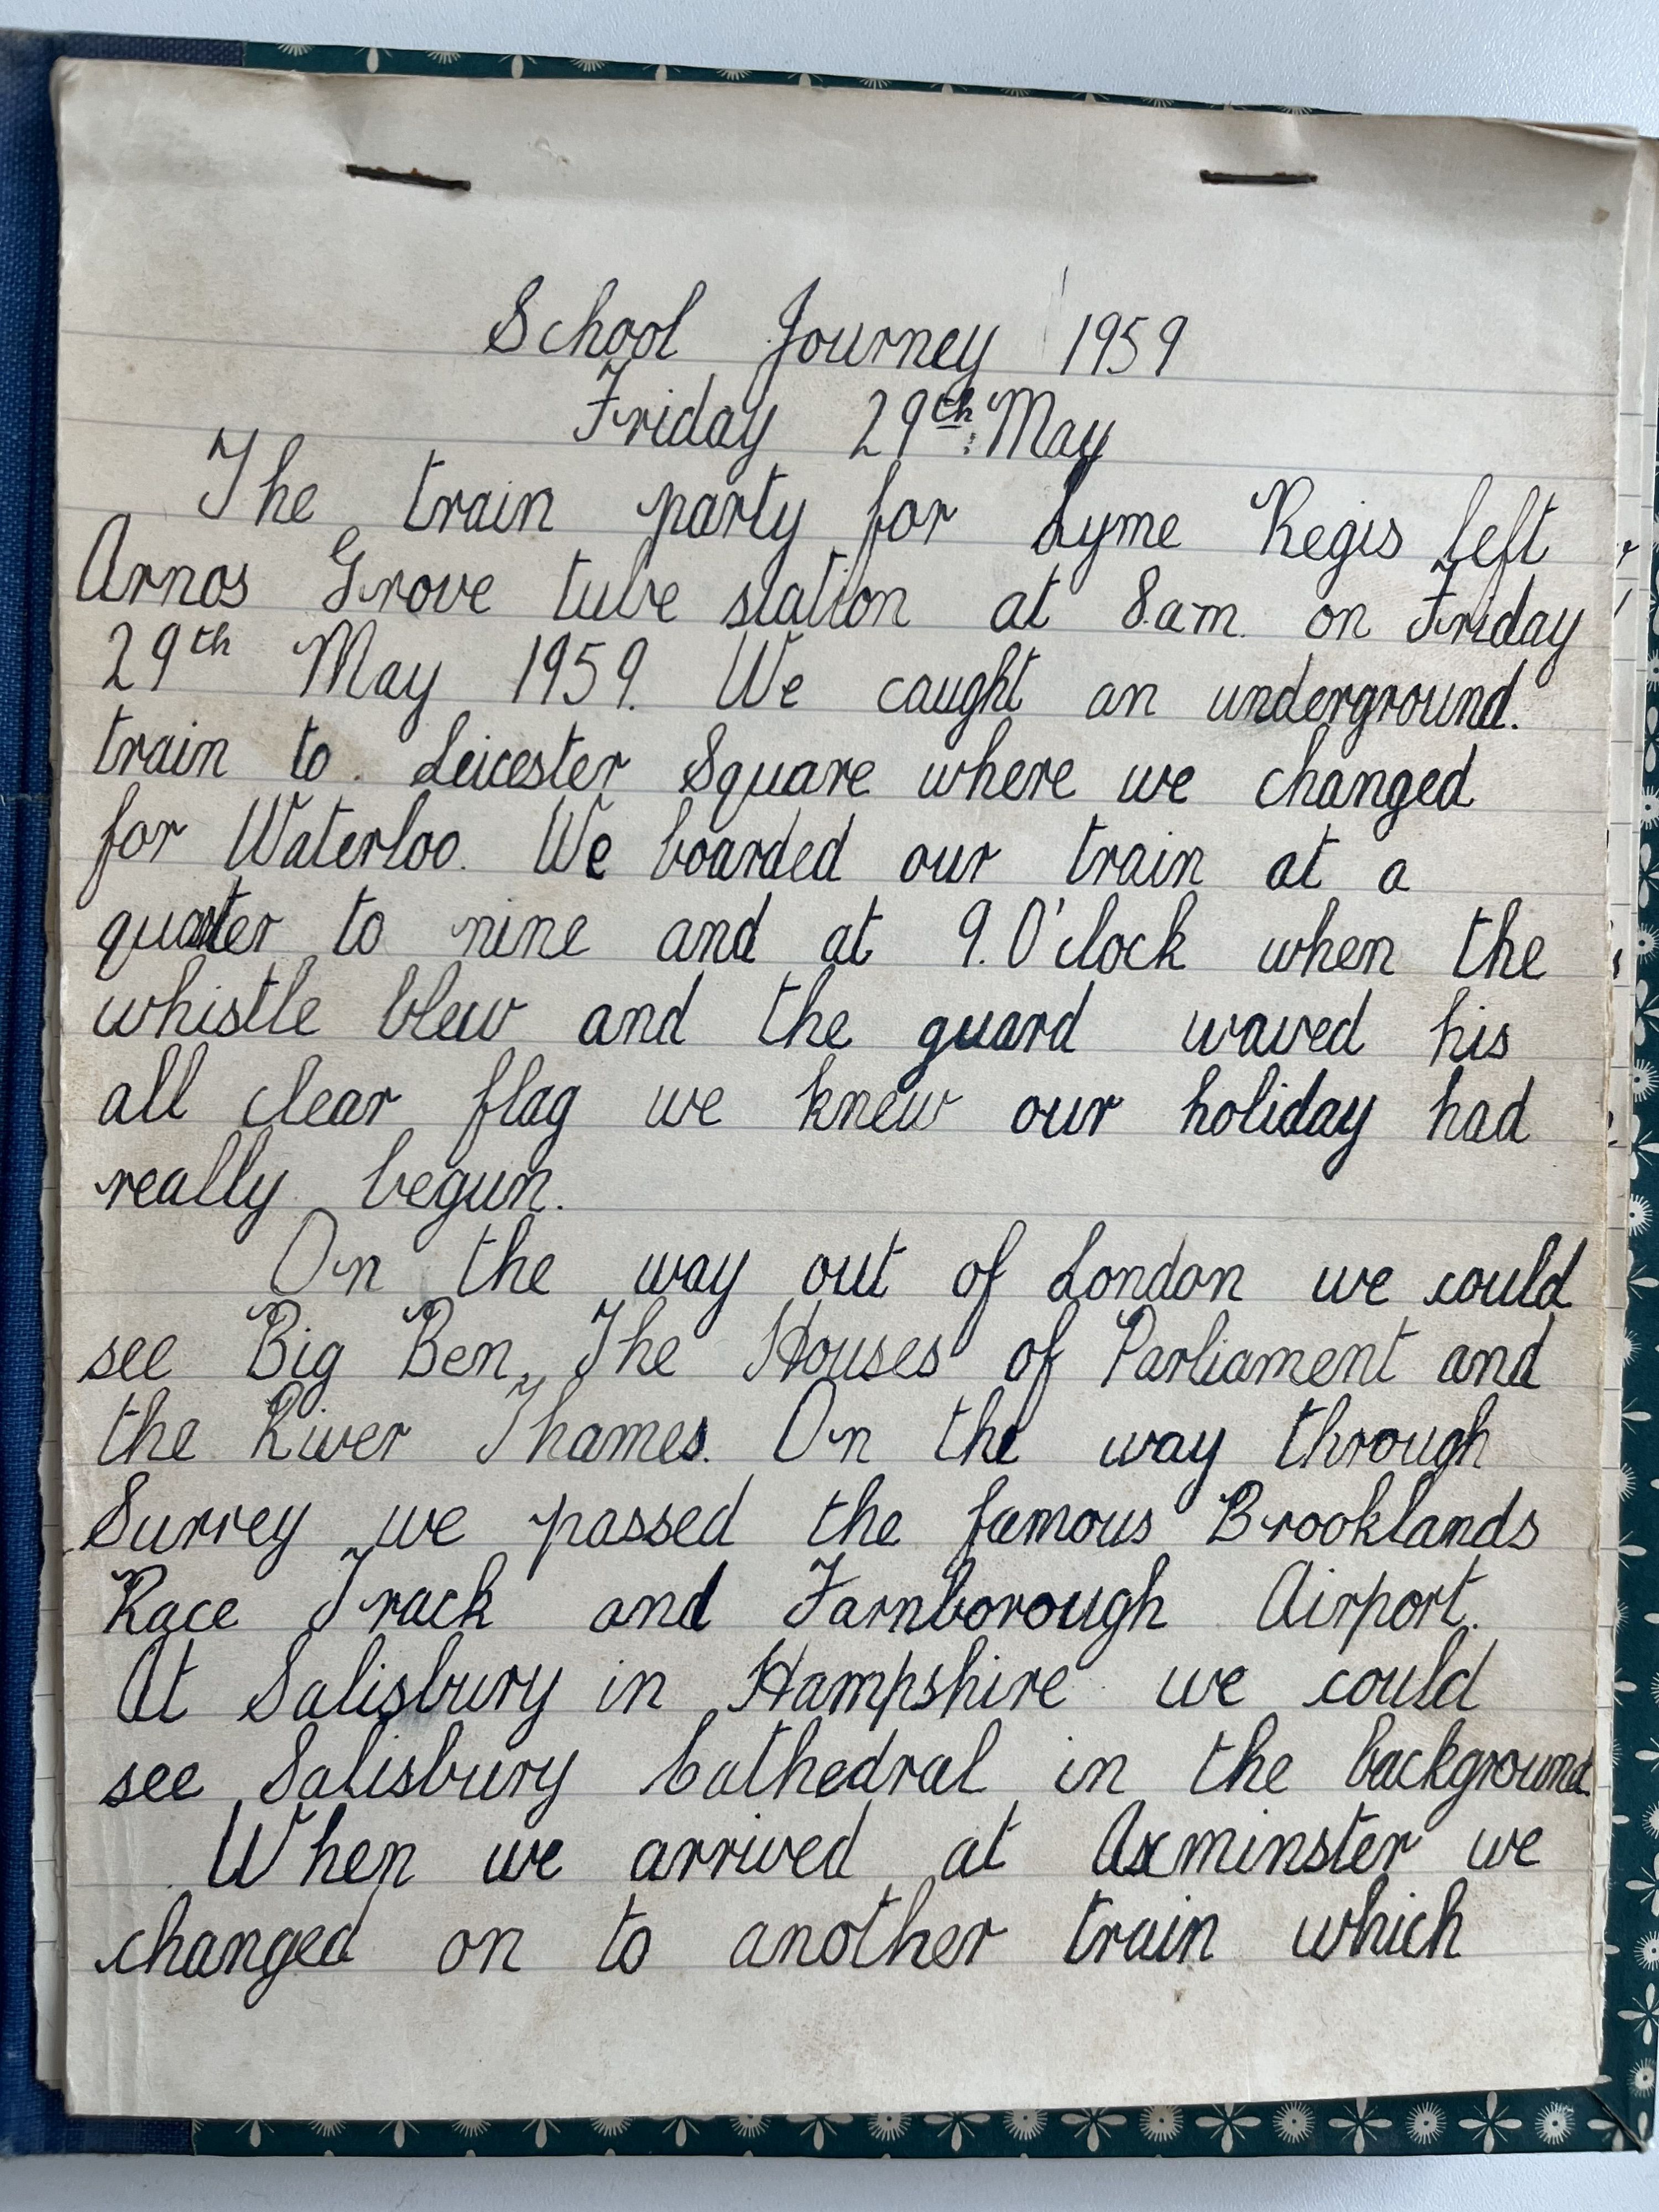 School Journey 1959
Friday 29th May
The train party for Lyme Regis left
Arnos Grove tube station at 8.am. on Friday
29th May 1959. We caught an underground.
train to. Leicester Square where we changed
for Waterloo. We boarded our train at a
quarter to nine and at 9.O'clock when the
whistle blew and the guard waved his
all clear flag we knew our holiday had
really begun.
On the way out of London we could
see Big Ben, The Houses of Parliament and
the River Thames. On the way through
Surrey we passed the famous Brooklands
Race Track and Farnborough Airport.
At Salisbury in Hampshire we could
see Salisbury Cathedral in the background.
When we arrived at Axminster we
changed on to another train which